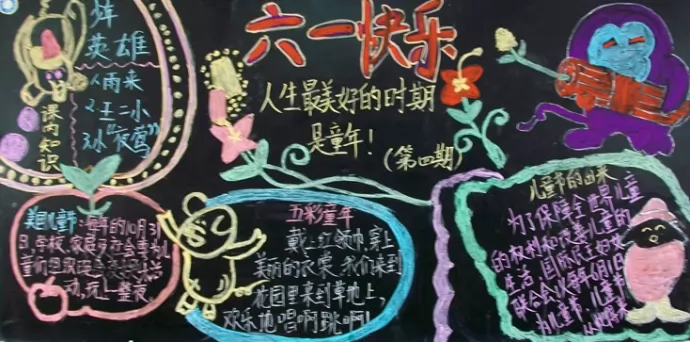 六一快乐
人生最美好的时期
是童年！
（第四期）
英雄
1.雨来
2.王二小
3.小“夜莺”
课内知识
美国儿童节：每年的10月31
日，学校、家庭
动，玩上整夜。
五彩童年
戴上红领巾，穿上
美丽的衣裳，我们来到
花园里来到草地上，
欢乐地唱啊跳啊！
儿童节的由来
为了保障全世界儿童
的权利和改善儿童的
生活，国际民主妇女
联合会以每年6月1日
为儿童节，儿童节
从此得来